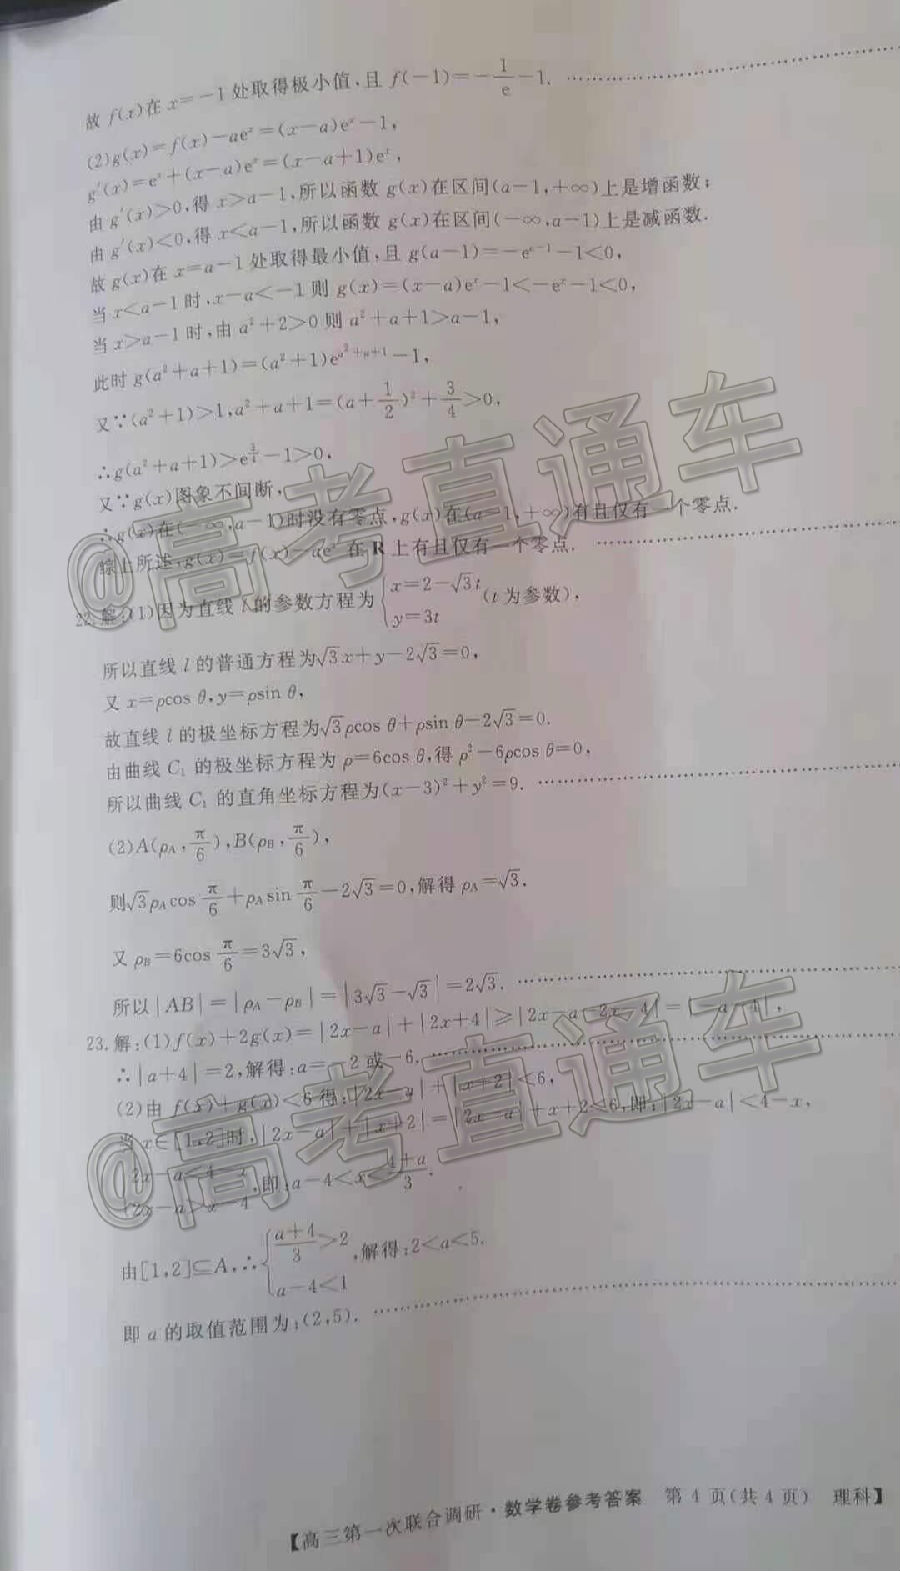 故 f(x)在 x=-1处取得极小值,且 f(-1)=-1/e-1.
(2)g(x)=f(x)-aeˣ=(x-a)eˣ-1,
g′(x)=eˣ+(x-a)eˣ=(x-a+1)eˣ,
由 g′(x)>0,得 x>a-1,所以函数 g(x)在区间(a-1,+∞)上是增函数;
由 g′(x)<0,得 x<a-1,所以函数 g(x)在区间(-∞,a-1)上是减函数.
故 g(x)在 x=a-1处取得最小值,且 g(a-1)=-eᵃ⁻¹-1<0,
当 x<a-1时,x-a<-1则 g(x)=(x-a)eˣ-1<-eˣ-1<0,
当 x>a-1时,由 a²+2>0则 a²+a+1>a-1,
此时 g(a²+a+1)=(a²+1)e^(a²+a+1)-1,
又∵(a²+1)>1,a²+a+1=(a+1/2)²+3/4>0,
∴g(a²+a+1)>e^(3/4)-1>0.
又∵g(x)图象不间断,
∴g(x)在(-∞,a-1)时没有零点,g(x)在(a-1,+∞)有且仅有一个零点.
综上所述,g(x)=f(x)-aeˣ在 R 上有且仅有一个零点.
22.解:(1)因为直线 l 的参数方程为{x=2-√3t y=3t (t 为参数),
所以直线 l 的普通方程为√3x+y-2√3=0,
又 x=ρcos θ,y=ρsin θ,
故直线 l 的极坐标方程为√3ρcos θ+ρsin θ-2√3=0.
由曲线 C₁ 的极坐标方程为 ρ=6cos θ,得 ρ²-6ρcos θ=0,
所以曲线 C₁ 的直角坐标方程为(x-3)²+y²=9.
(2)A(ρA,π/6),B(ρB,π/6),
则√3ρAcos π/6+ρAsin π/6-2√3=0,解得 ρA=√3.
又 ρB=6cos π/6=3√3,
所以|AB|=|ρA-ρB|=|3√3-√3|=2√3.
23.解:(1)f(x)+2g(x)=|2x-a|+|2x+4|≥|2x-a-2x-4|=|-a-4|,
∴|a+4|=2,解得:a=-2或-6.
(2)由 f(x)+g(x)<6得:|2x-a|+|x+2|<6,
当 x∈[1,2]时,|2x-a|+|x+2|=|2x-a|+x+2<6,即:|2x-a|<4-x,
{2x-a<4-x 2x-a>x-4,即:a-4<x<(4+a)/3.
由[1,2]⊆A,∴{(a+4)/3>2 a-4<1,解得:2<a<5.
即 a 的取值范围为:(2,5).
【高三第一次联合调研·数学卷参考答案 第 4 页(共 4 页) 理科】
@高考直通车
@高考直通车